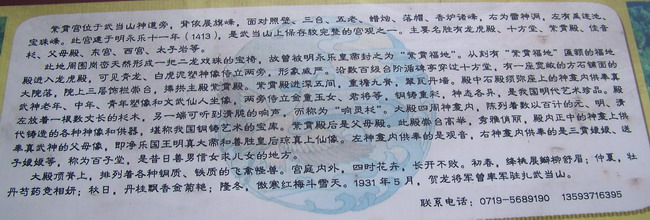 紫霄宫位于武当山神道旁，背依展旗峰，面对照壁、三台、五老、蜡烛、落帽、香炉诸峰，右为雷神洞，左有禹迹池、
宝珠峰。此宫建于明永乐十一年（1413），是武当山上保存较完整的宫观之一。主要名胜有龙虎殿、十方堂、紫霄殿、佳音
杉、父母殿、东宫、西宫、太子岩等。
此地周围岗峦天然形成一把二龙戏珠的宝椅，故曾被明永乐皇帝封之为“紫霄福地”。从刻有“紫霄福地”匾额的福地
殿进入龙虎殿，可见青龙、白虎泥塑神像侍立两旁，形象威严。沿数百级台阶油碑亭穿过十方堂，有一座宽敞的方石铺面的
大院落，院上三层饰栏崇台，捧拱主殿紫霄殿。紫霄殿进深五间，重檐九脊，翠瓦丹墙。殿中石殿须弥座上的神龛内供奉真
武神老年、中年、青年塑像和文武仙人坐像，两旁侍立金童玉女、君将等，铜铸重彩，神态各异，是我国明代艺术珍品。殿
左放着一根数丈长的杉木，另一端可听到清脆的响声，而称为“响灵杉”。大殿四周神龛内，陈列着数以百计的元、明、清
代铸造的各种神像和供器，堪称我国铜铸艺术的宝库。紫霄殿后是父母殿。此殿崇台高举，秀雅俏丽，殿内正中的神龛上供
奉真武神的父母像，即净乐国王明真大帝和善胜皇后琼真上仙像。左神龛内供奉的是观音，右神龛内供奉的是三霄娘娘、送
子娘娘等，称为百子堂，是昔日善男信女求儿女的地方。
大殿顶脊上，排列着各种铜质、铁质的飞禽怪兽。宫庭内外，四时花卉，长开不败。初春，绛桃展绷柳舒眉；仲夏，牡
丹芍药竞相妍；秋日，丹桂飘香金菊艳；隆冬，傲寒红梅斗雪天。1931年5月，贺龙将军曾率军驻扎武当山。
联系电话：0719-5689190 13593716395